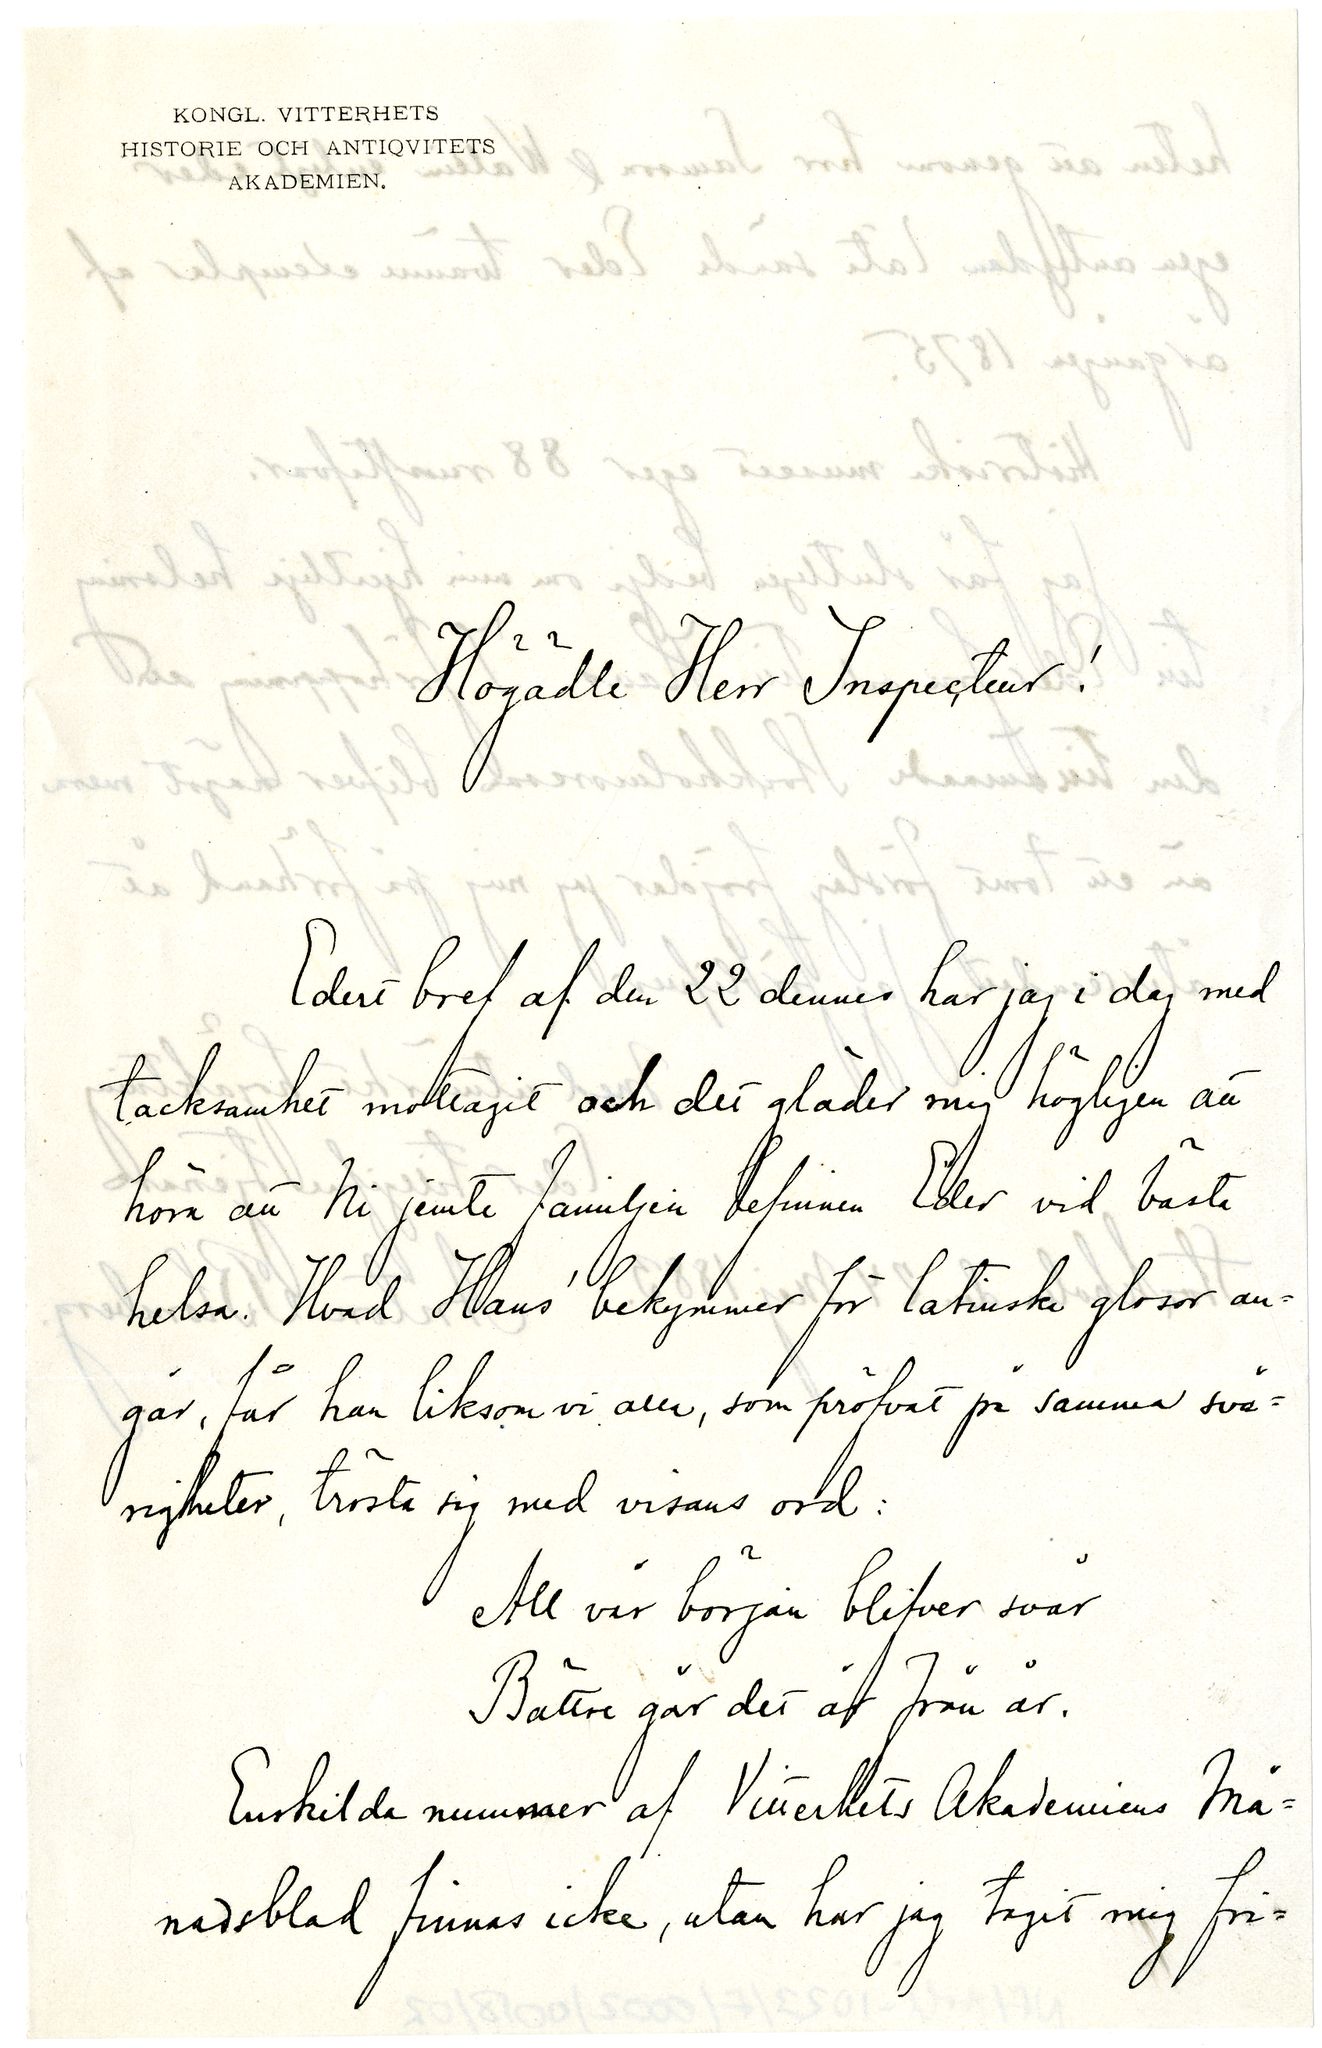 KONGL. VITTERHETS
HISTORIE OCH ANTIQVITETS
AKADEMIEN.
Högädle Herr Inspecteur!
Edert bref af den 22 dennes har jag i dag med
tacksamhet mottagit och det gläder mig högligen att
höra att Ni jemte familjen befinnen Eder vid bästa
helsa. Hvad Hans' bekymmer för latinska glosor an=
går, får han liksom vi alla, som pröfvat på samma svå=
righeter, trösta sig med visans ord:
All vår början blifver svår
Bättre går det år från år.
Enskilda nummer af Vitterhets Akademiens Må=
nadsblad finnas icke, utan har jag tagit mig fri=